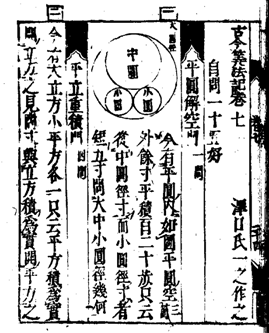 古今算法記卷七
澤口氏一之作之
自問一十五好
平圓解空門 一問
大圓徑
中圓
小圓
小圓
今有平圓内如圖平圓空三
外餘寸平積百二十歩只云
從中圓徑寸而小圓徑寸者
短五寸問大中小圓徑幾何
平立重積門 四問
今有大立方小平方各一只云平方積爲實
開立方之見商寸與立方積爲實開平方之
一
二